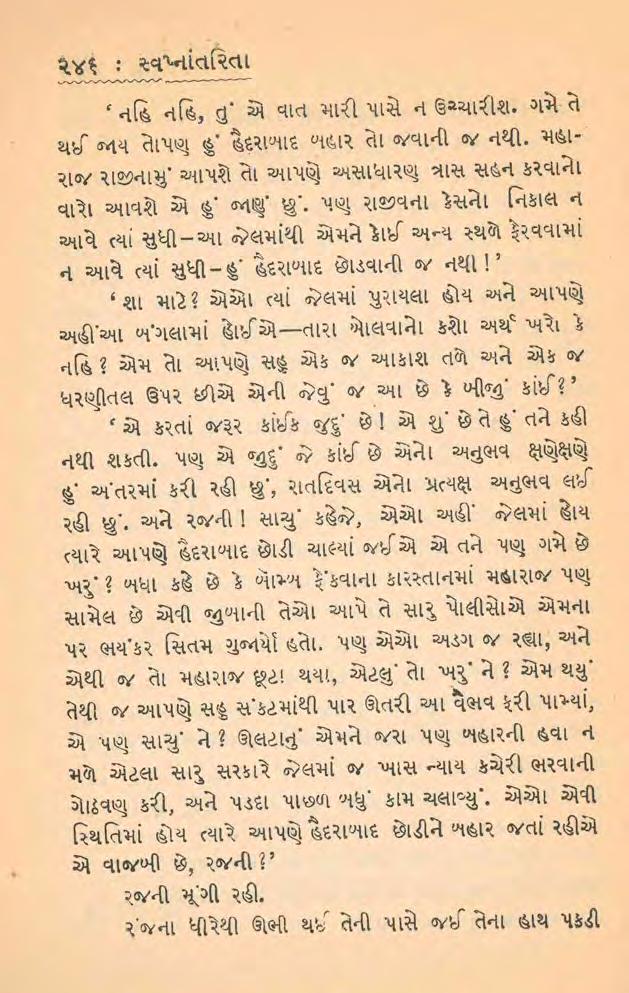 ૨૪૬ : સ્વપ્નાંતરિતા
‘ નહિ નહિ, તું એ વાત મારી પાસે ન ઉચ્ચારીશ. ગમે તે
થઈ જાય તોપણ હું હૈદરાબાદ બહાર તો જવાની જ નથી. મહા-
રાજ રાજીનામું આપશે તો આપણે અસાધારણ ત્રાસ સહન કરવાનો
વારો આવશે એ હું જાણું છું. પણ રાજીવના કેસનો નિકાલ ન
આવે ત્યાં સુધી–આ જેલમાંથી એમને કોઈ અન્ય સ્થળે ફેરવવામાં
ન આવે ત્યાં સુધી–હું હૈદરાબાદ છોડવાની જ નથી !’
‘ શા માટે? એઓ ત્યાં જેલમાં પુરાયલા હોય અને આપણે
અહીંઆ બંગલામાં હોઈએ—તારા બોલવાનો કશો અર્થ ખરો કે
નહિ ? એમ તો આપણે સહુ એક જ આકાશ તળે અને એક જ
ધરણીતલ ઉપર છીએ એની જેવું જ આ છે કે બીજું કાંઈ?’
‘ એ કરતાં જરૂર કાંઈક જુદું છે! એ શું છે તે હું તને કહી
નથી શકતી. પણ એ જુદું જે કાંઈ છે એનો અનુભવ ક્ષણેક્ષણે
હું અંતરમાં કરી રહી છું, રાતદિવસ એનો પ્રત્યક્ષ અનુભવ લઈ
રહી છું. અને રજની! સાચું કહેજે, એઓ અહીં જેલમાં હોય
ત્યારે આપણે હૈદરાબાદ છોડી ચાલ્યાં જઈએ એ તને પણ ગમે છે
ખરું ? બધા કહે છે કે બૉમ્બ ફેંકવાના કારસ્તાનમાં મહારાજ પણ
સામેલ છે એવી જુબાની તેઓ આપે તે સારુ પોલીસોએ એમના
પર ભયંકર સિતમ ગુજાર્યો હતો. પણ એઓ અડગ જ રહ્યા, અને
એથી જ તો મહારાજ છૂટા થયા, એટલું તો ખરું ને ? એમ થયું
તેથી જ આપણે સહુ સંકટમાંથી પાર ઊતરી આ વૈભવ ફરી પામ્યાં,
એ પણ સાચું ને ? ઊલટાનું એમને જરા પણ બહારની હવા ન
મળે એટલા સારુ સરકારે જેલમાં જ ખાસ ન્યાય કચેરી ભરવાની
ગોઠવણ કરી, અને પડદા પાછળ બધું કામ ચલાવ્યું. એઓ એવી
સ્થિતિમાં હોય ત્યારે આપણે હૈદરાબાદ છોડીને બહાર જતાં રહીએ
એ વાજબી છે, રજની ?’
રજની મૂંગી રહી.
રંજના ધીરેથી ઊભી થઈ તેની પાસે જઈ તેના હાથ પકડી